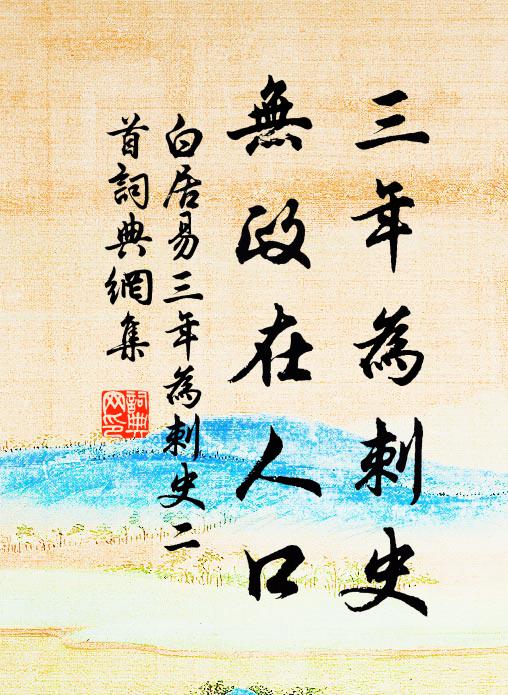 三年為刺史
無政在人口
白居易三年為刺史二
首詞典網集
詞典
网印